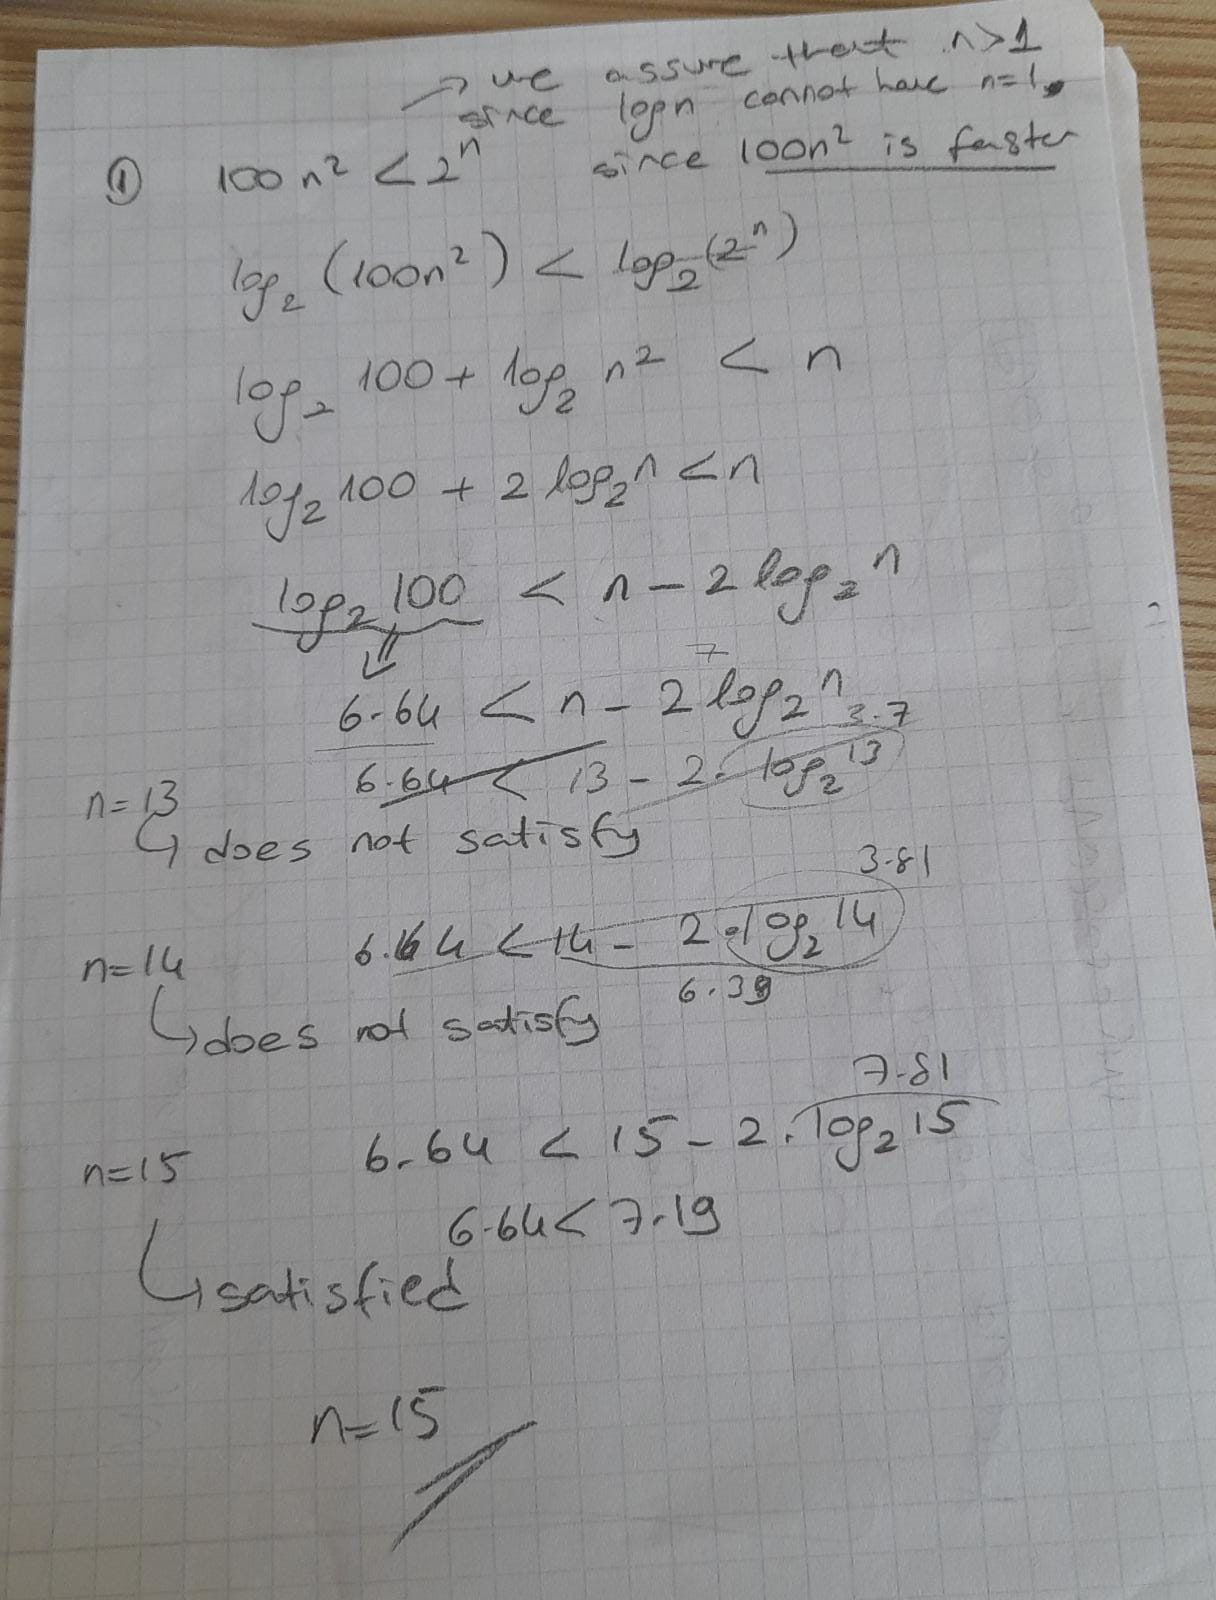 → we assure that n>1
since logn cannot have n=1.
① 100n² < 2ⁿ since 100n² is faster
log₂(100n²) < log₂(2ⁿ)
log₂ 100 + log₂ n² < n
log₂ 100 + 2 log₂ n < n
log₂ 100 < n - 2 log₂ n
7
6.64 < n - 2 log₂ n
3.7
n=13 6.64 < 13 - 2. log₂ 13
↳ does not satisfy
3.81
n=14 6.64 < 14 - 2.log₂ 14
6.39
↳ does not satisfy
7.81
n=15 6.64 < 15 - 2.log₂ 15
6.64 < 7.19
↳ satisfied
n=15